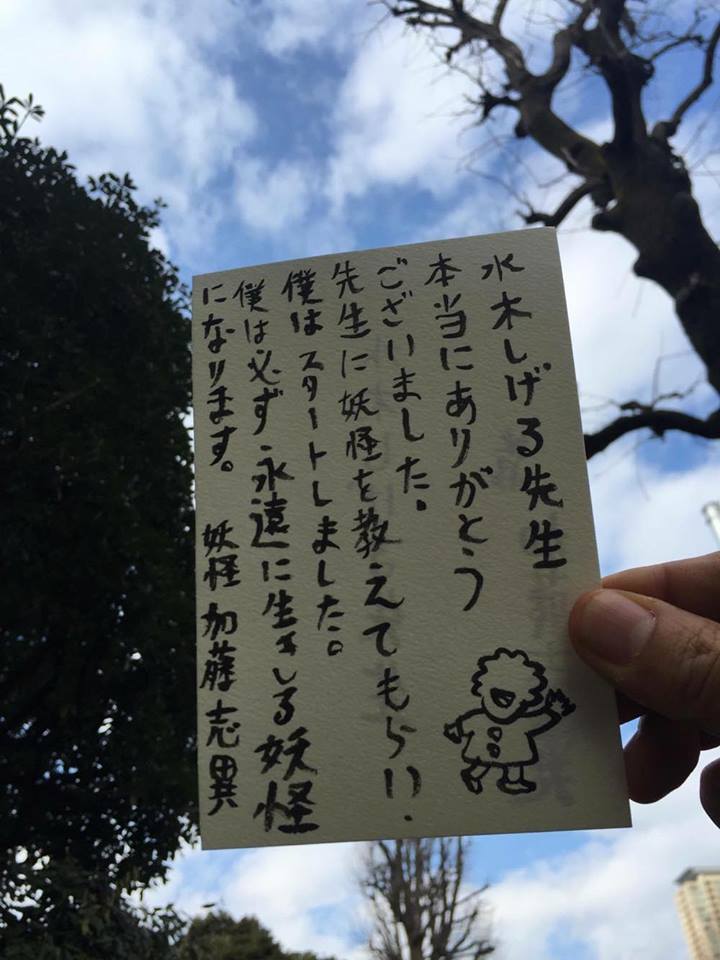 水木しげる先生
本当にありがとう
ございました。
先生に妖怪を教えてもらい.
僕はスタートしました。
僕は必ず永遠に生きしる妖怪
になります。 妖怪 加藤志異